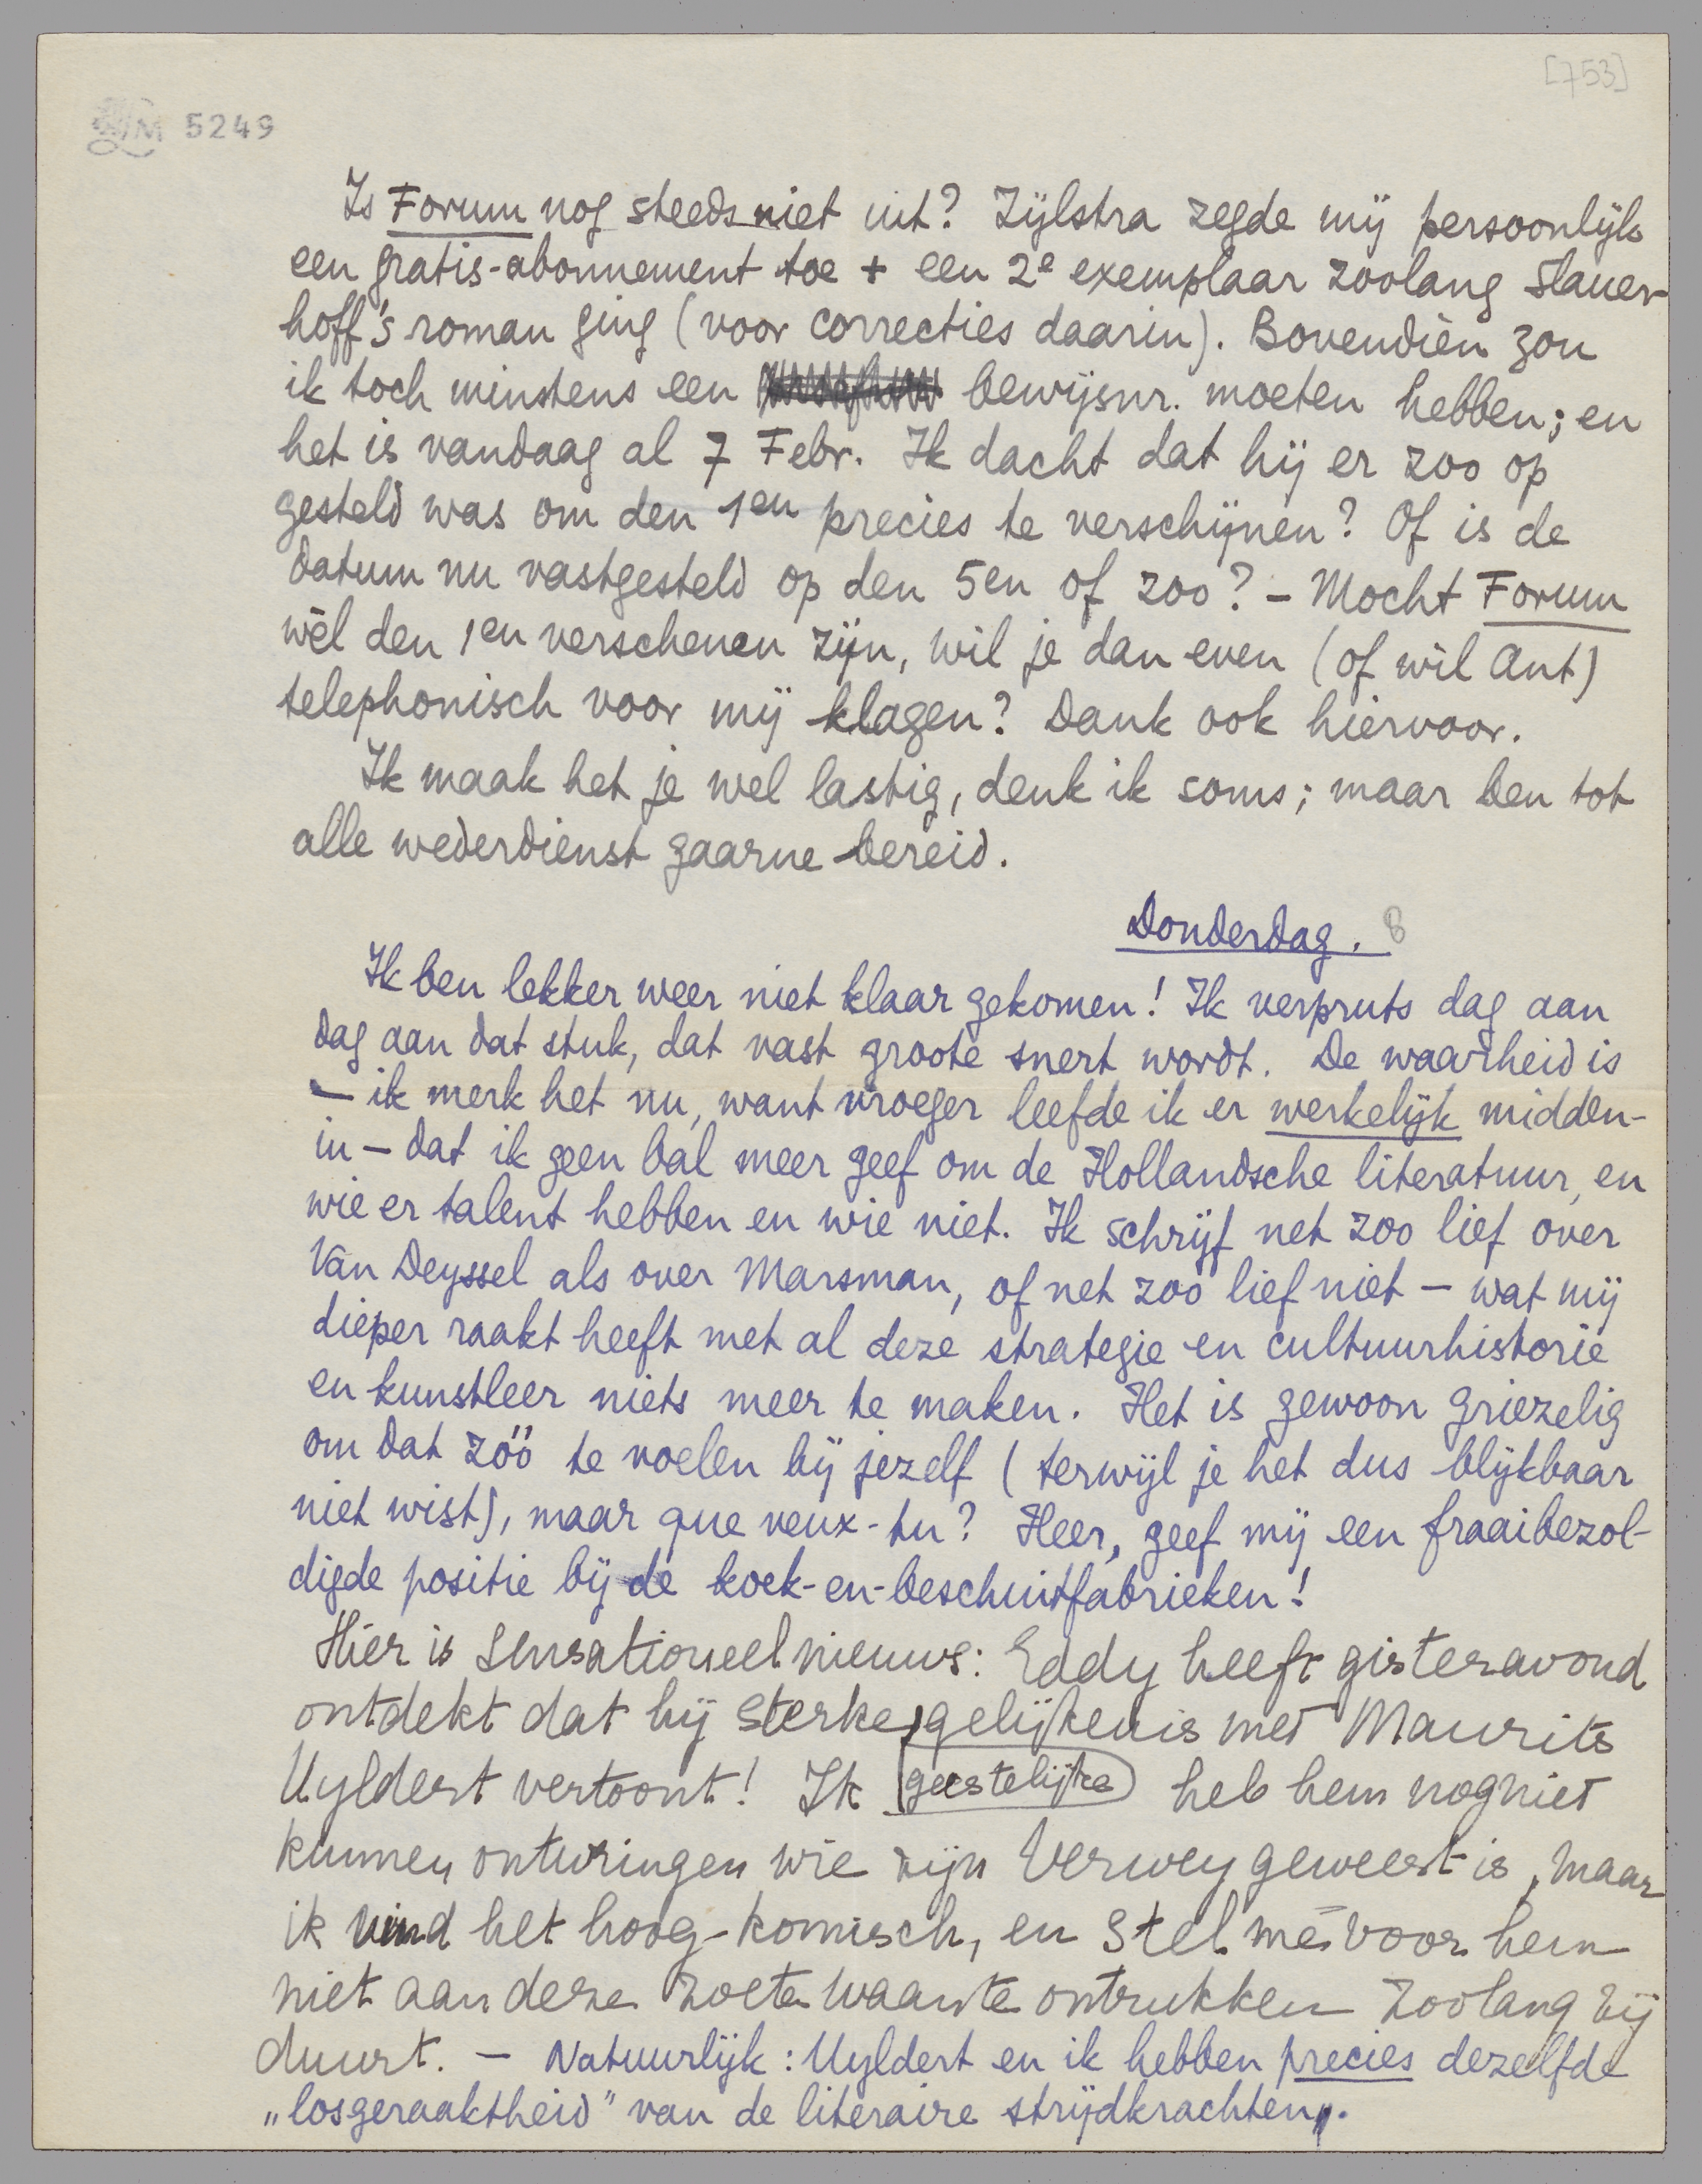 [753]
LM 5249
Is Forum nog steeds niet uit? Zijlstra zegde mij persoonlijk
een gratis-abonnement toe + een 2e exemplaar zoolang Slauer-
hoff's roman ging (voor correcties daarin). Bovendien zou
ik toch minstens een bewijsnr. moeten hebben; en
het is vandaag al 7 Febr. Ik dacht dat hij er zoo op
gesteld was om den 1en precies te verschijnen? Of is de
datum nu vastgesteld op den 5en of zoo? – Mocht Forum
wèl den 1en verschenen zijn, wil je dan even (of wil Ant)
telephonisch voor mij klagen? Dank ook hiervoor.
Ik maak het je wel lastig, denk ik soms; maar ben tot
alle wederdienst gaarne bereid.
Donderdag. 8
Ik ben lekker weer niet klaar gekomen! Ik verpruts dag aan
dag aan dat stuk, dat vast groote snert wordt. De waarheid is
– ik merk het nu, want vroeger leefde ik er werkelijk midden-
in – dat ik geen bal meer geef om de Hollandsche literatuur, en
wie er talent hebben en wie niet. Ik schrijf net zoo lief over
Van Deyssel als over Marsman, of net zoo lief niet – wat mij
dieper raakt heeft met al deze strategie en cultuurhistorie
en kunstleer niets meer te maken. Het is gewoon griezelig
om dat zóó te voelen bij jezelf (terwijl je het dus blijkbaar
niet wist), maar que veux-tu? Heer, geef mij een fraaibezol-
digde positie bij de koek-en-beschuitfabrieken!
Hier is sensationeel nieuws: Eddy heeft gisteravond
ontdekt dat hij sterke gelijkenis met Maurits
Uyldert vertoont! Ik geestelijke heb hem nog niet
kunnen ontwringen wie zijn Verwey geweest is, maar
ik vind het hoog-komisch, en stel me voor hem
niet aan deze zoete waan te ontrukken zoolang zij
duurt. – Natuurlijk: Uyldert en ik hebben precies dezelfde
„losgeraaktheid" van de literaire strijdkrachten.